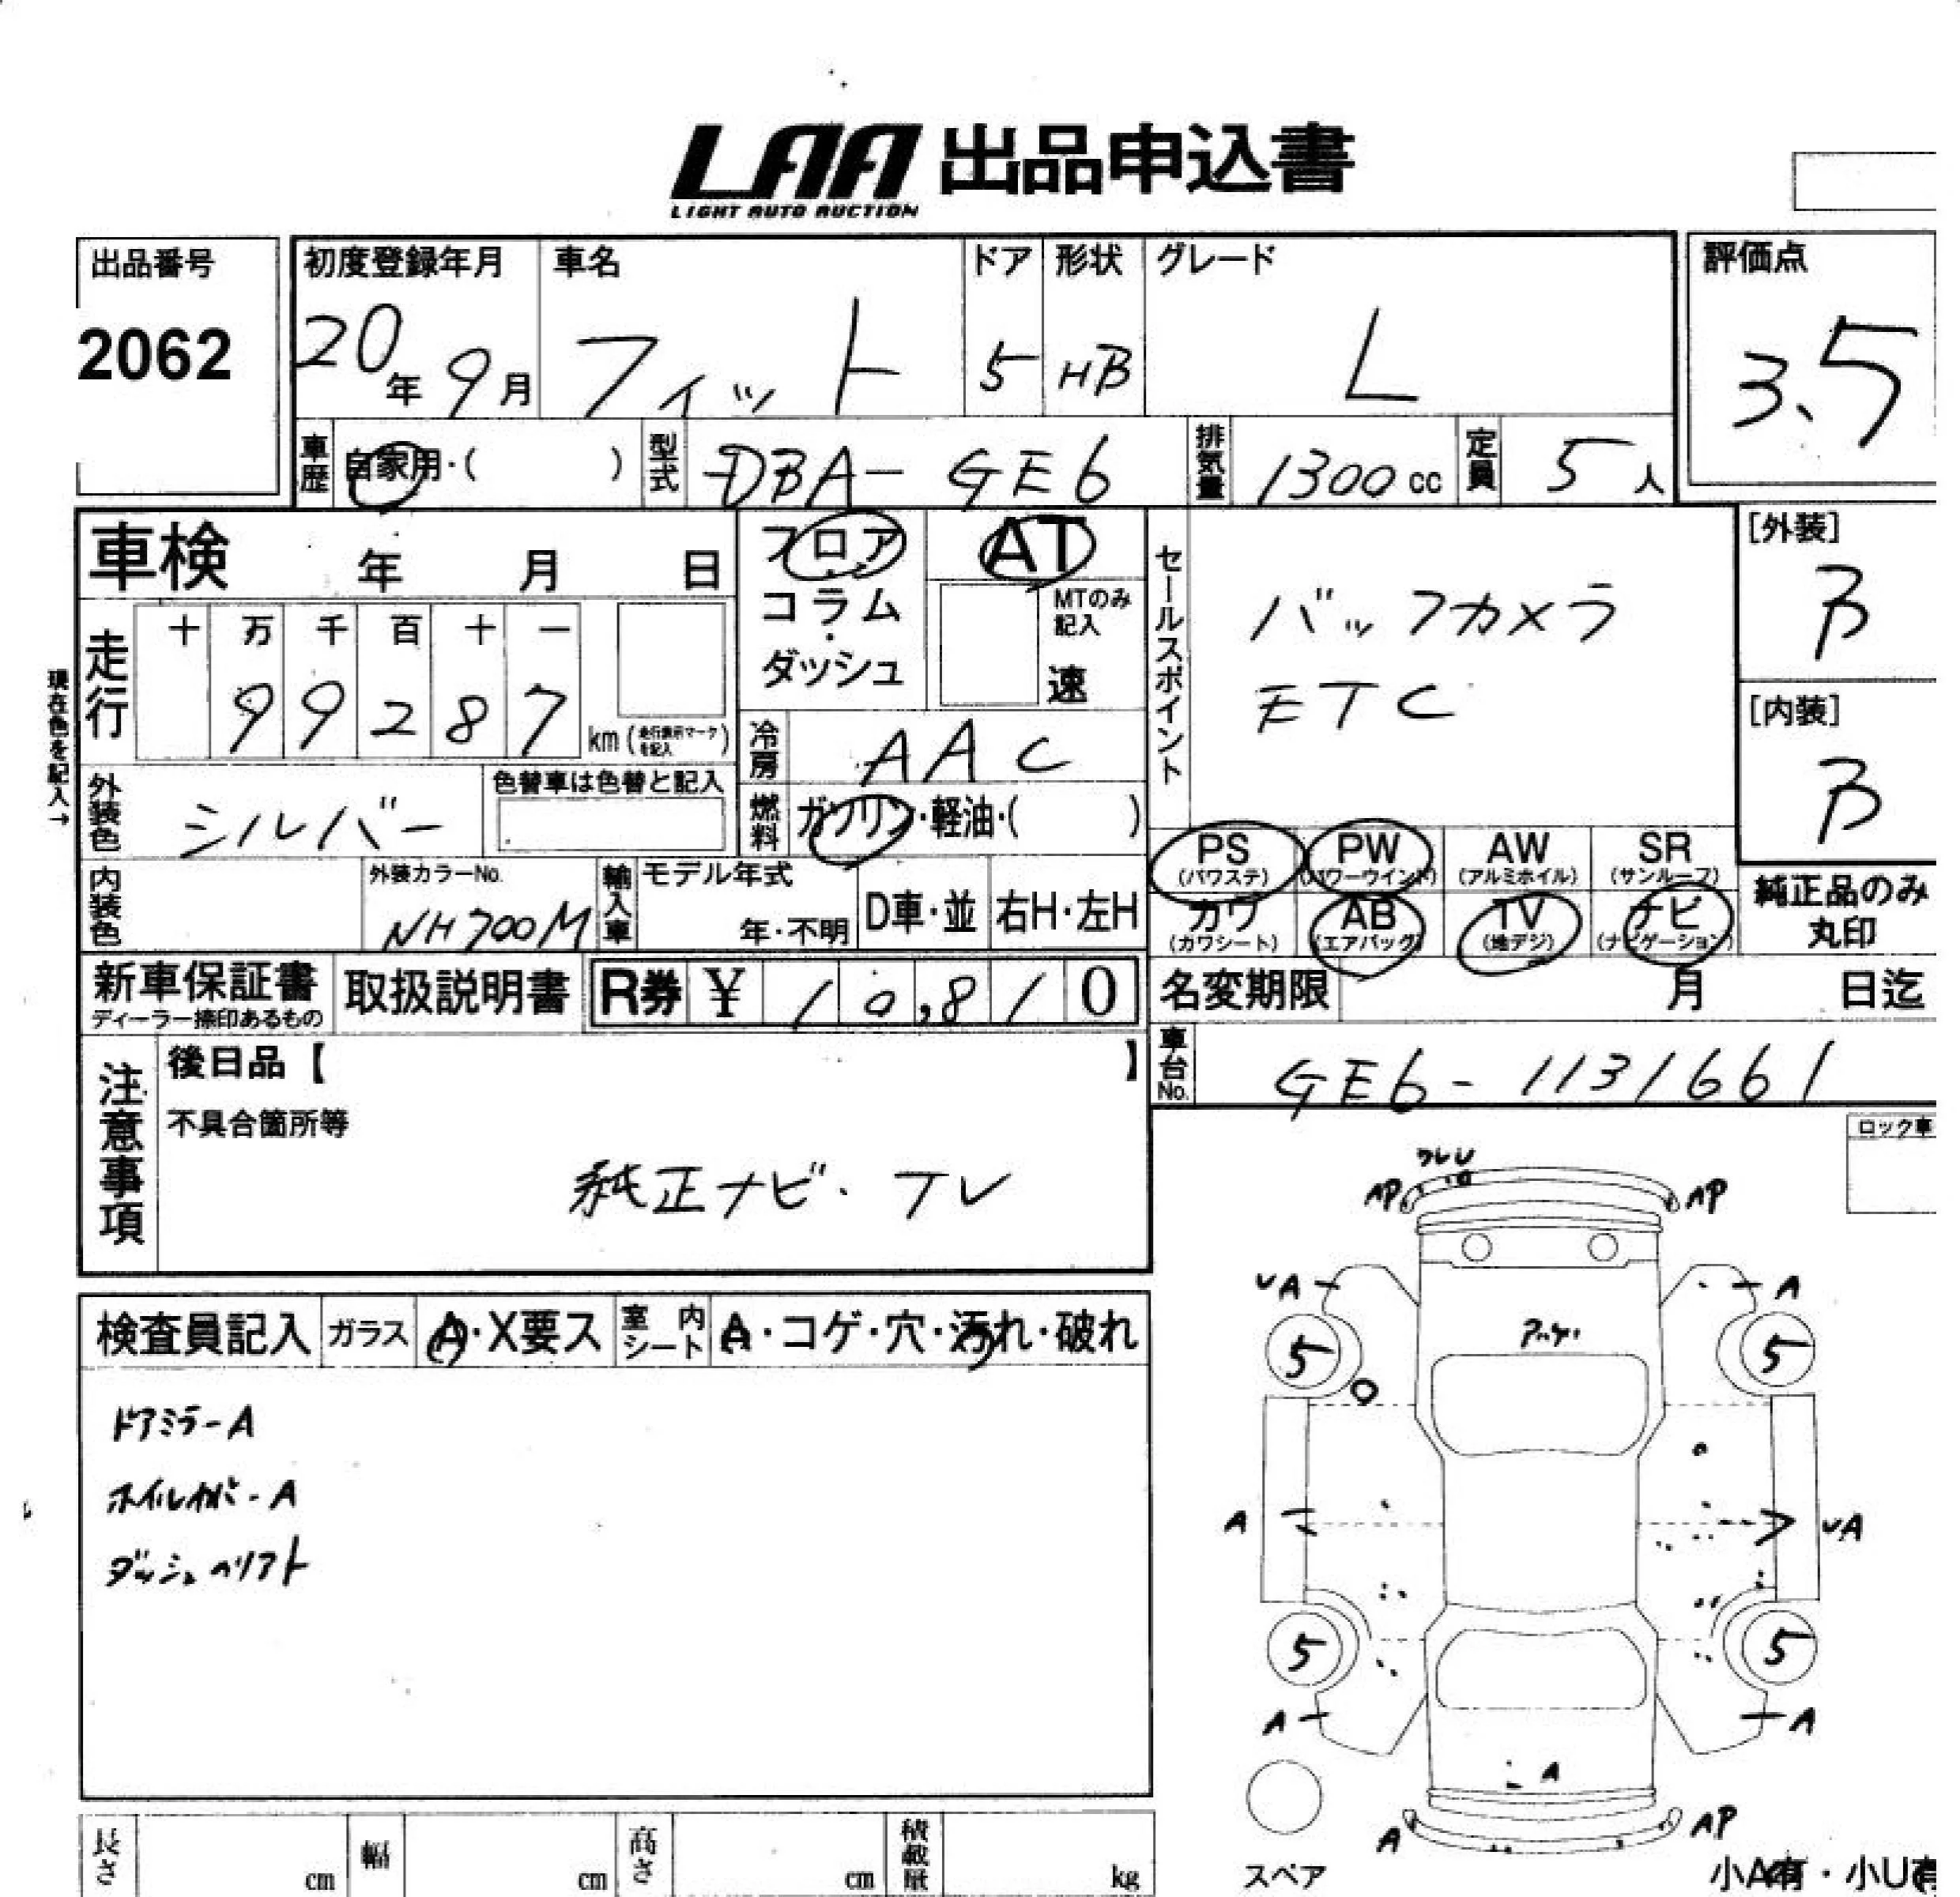 LAA 出品申込書
LIGHT AUTO AUCTION
出品番号
2062
初度登録年月
20年 9月
車名
フィット
ドア
5
形状
HB
グレード
L
評価点
3.5
車歴
自家用・( )
型式
DBA-GE6
排気量
1300 cc
定員
5 人
車検 年 月 日
フロア
コラム
・
ダッシュ
AT
MTのみ
記入
速
セールスポイント
バックカメラ
ETC
[外装]
B
[内装]
B
現在色を記入→
走行
十 万 千 百 十 一
9 9 2 8 7
km (走行表示マークを記入)
冷房
AAC
外装色
シルバー
色替車は色替と記入
燃料
ガソリン・軽油・( )
PS
(パワステ)
PW
(パワーウインド)
AW
(アルミホイル)
SR
(サンルーフ)
カワ
(カワシート)
AB
(エアバッグ)
TV
(地デジ)
ナビ
(ナビゲーション)
純正品のみ
丸印
内装色
外装カラーNo.
NH700M
輸入車
モデル年式
年・不明
D車・並
右H・左H
新車保証書
ディーラー捺印あるもの
取扱説明書
R券 ¥ 10,810
名変期限 月 日迄
車台No.
GE6-1131661
注意事項
後日品【 】
不具合箇所等
純正ナビ・テレ
ロック車
ワレU
AP
AP
UA
A
5
5
A
UA
5
5
A
A
A
A
AP
スペア
小A有・小U有
検査員記入
ガラス
A・X要ス
室内シート
A・コゲ・穴・汚れ・破れ
ドアミラーA
ホイルカバーA
ダッシュヘリフト
長さ cm
幅 cm
高さ cm
積載量 kg